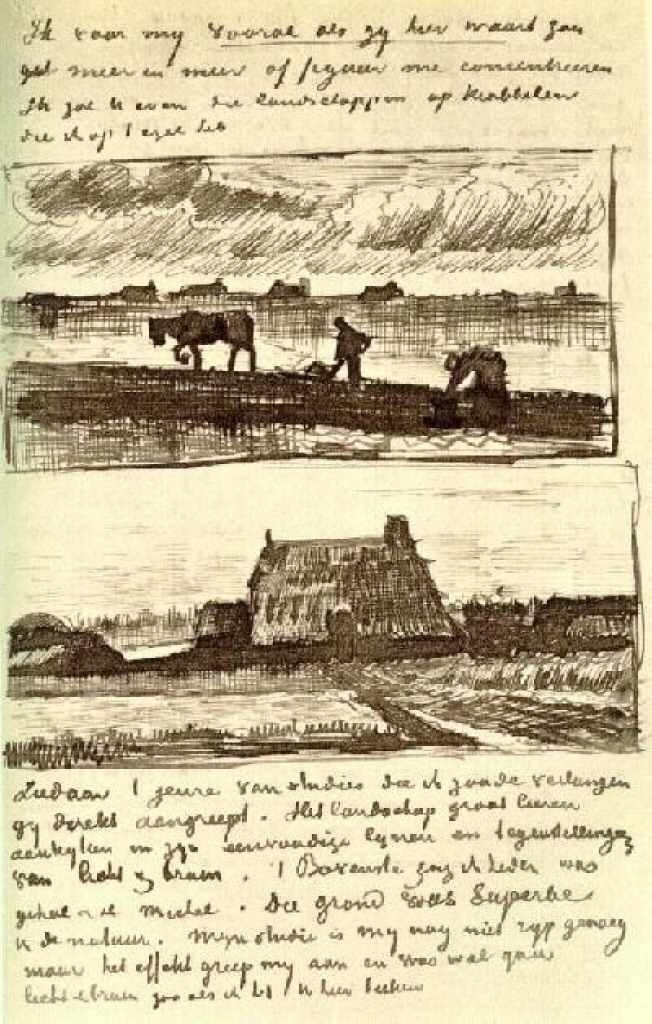 Ik voor mij vooral als gij hier waart zou
meer en meer op figuur me concentreeren
Ik zal U even de landschappen op krabbelen
die ik op t ezel heb
Ziedaar t genre van studies die ik zoude verlangen
gij direkt aangreept. Het landschap groot leeren
aankyken in zijn eenvoudige lijnen en tegenstellingen
van licht & bruin. 't Bovenste zag ik heden was
geheel en al Michel. Die grond was superbe
in de natuur. Mijn studie is mij nog niet rijp genoeg
maar het effekt greep mij aan en was wel qua
licht & bruin zoo als ik het U hier teeken